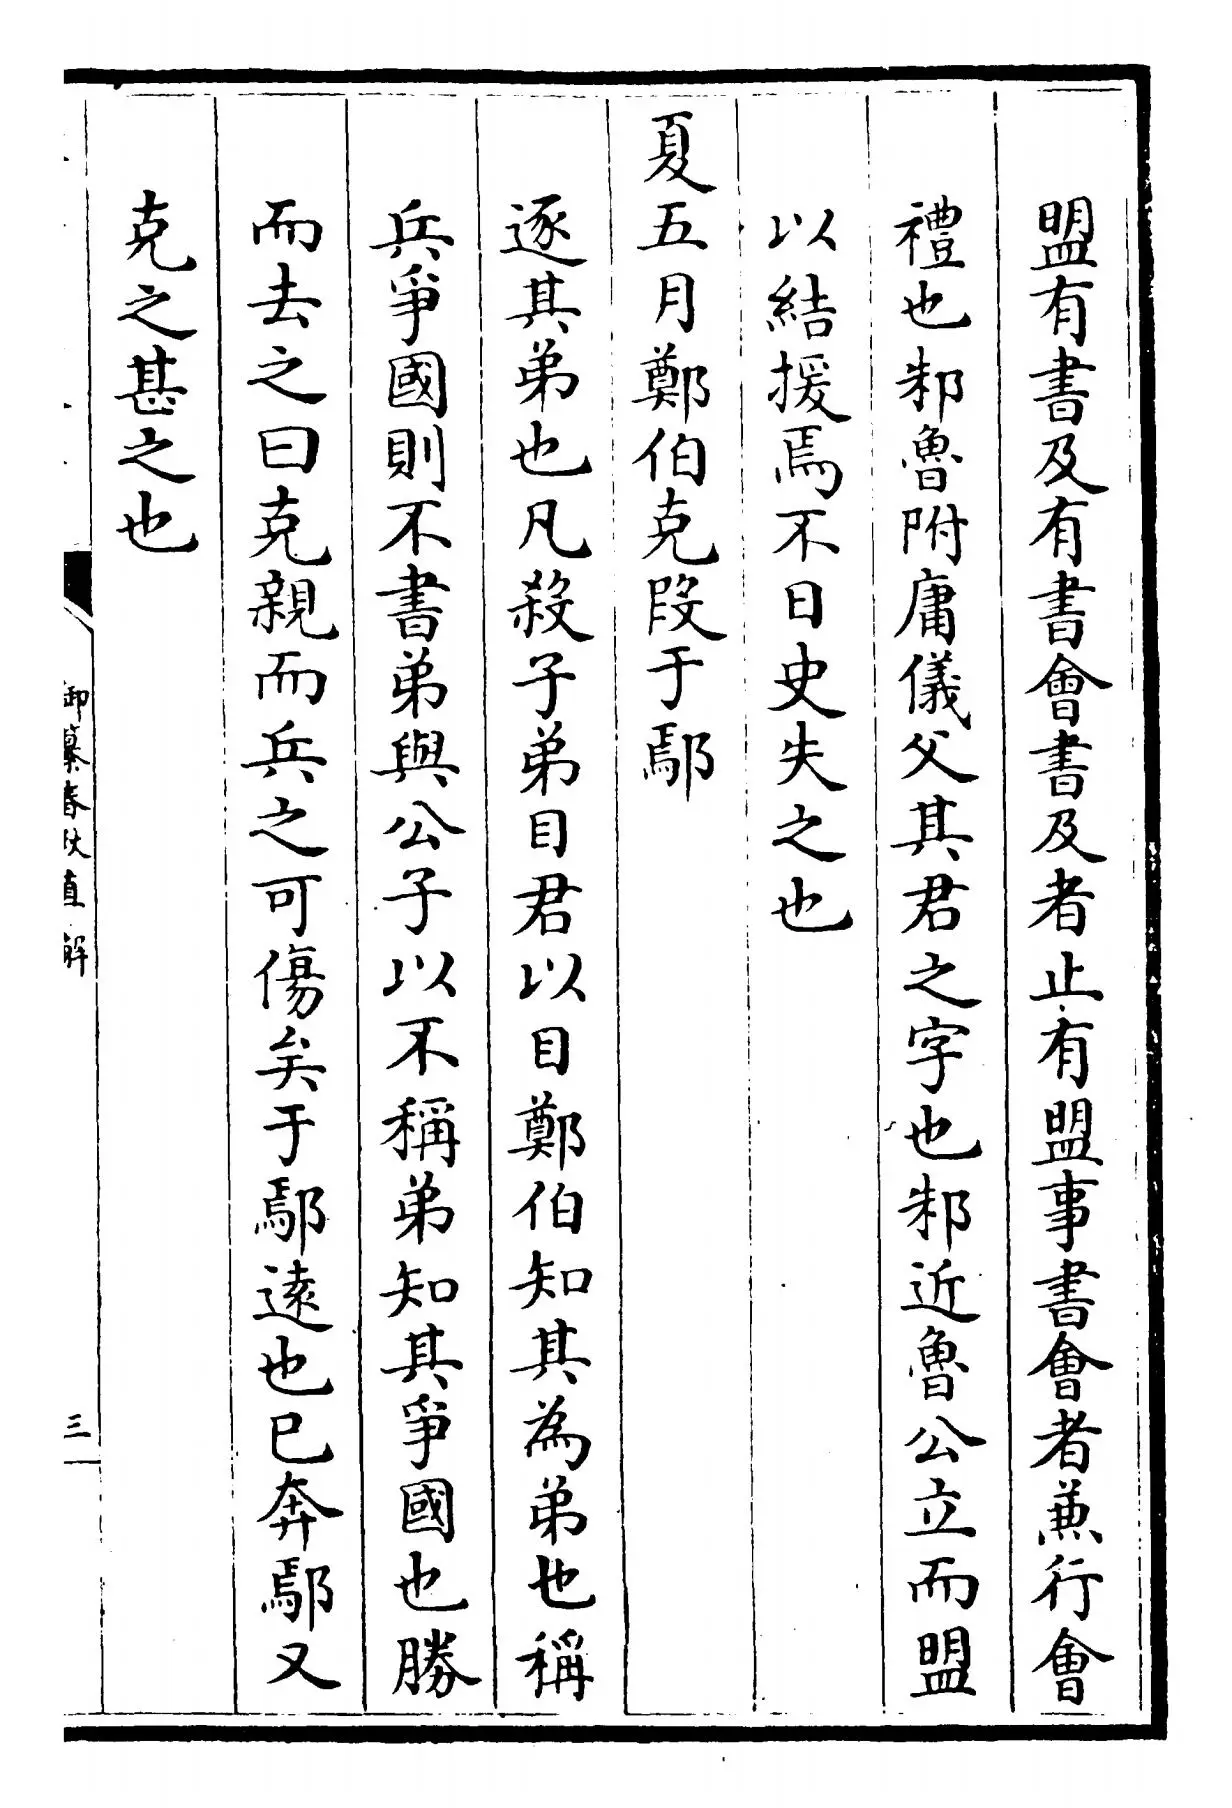 盟有書及有書會書及者止有盟事書會者兼行會
禮也邾魯附庸儀父其君之字也邾近魯公立而盟
以結援焉不日史失之也
夏五月鄭伯克段于鄢
逐其弟也凡殺子弟目君以目鄭伯知其為弟也稱
兵爭國則不書弟與公子以不稱弟知其爭國也勝
而去之曰克親而兵之可傷矣于鄢遠也已奔鄢又
克之甚之也
御纂春秋直解
三